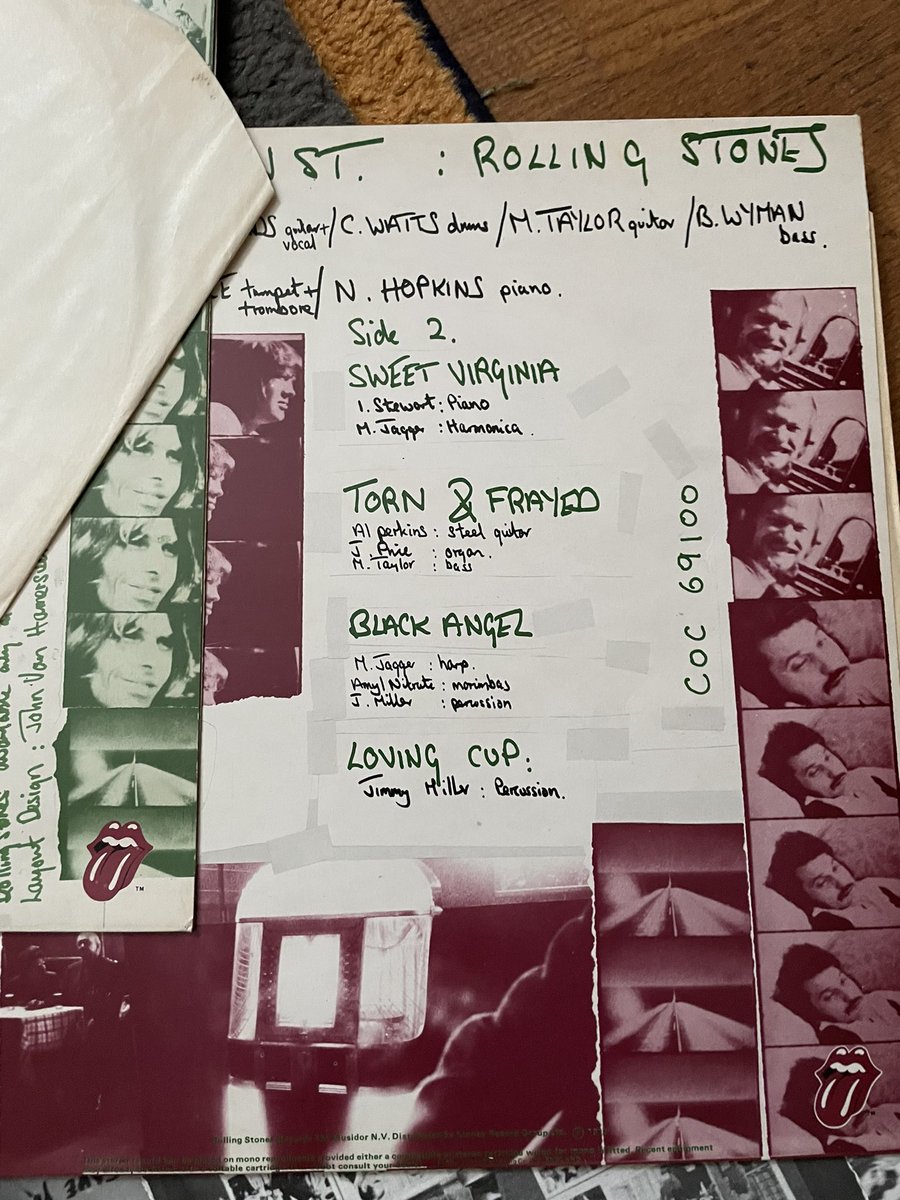 ST. : ROLLING STONES
guitar+ vocal / C. WATTS drums / M. TAYLOR guitar / B. WYMAN bass.
trumpet + trombone / N. HOPKINS piano.
Side 2.
SWEET VIRGINIA
I. Stewart : Piano
M. Jagger : Harmonica.
TORN & FRAYED
Al perkins : steel guitar
J. Price : organ.
M. Taylor : bass
BLACK ANGEL
M. Jagger : harp.
Amyl Nitrate : marimbas
J. Miller : percussion
LOVING CUP :
Jimmy Miller : Percussion.
COC 69100
Layout Design : John Van Hamersv
TM